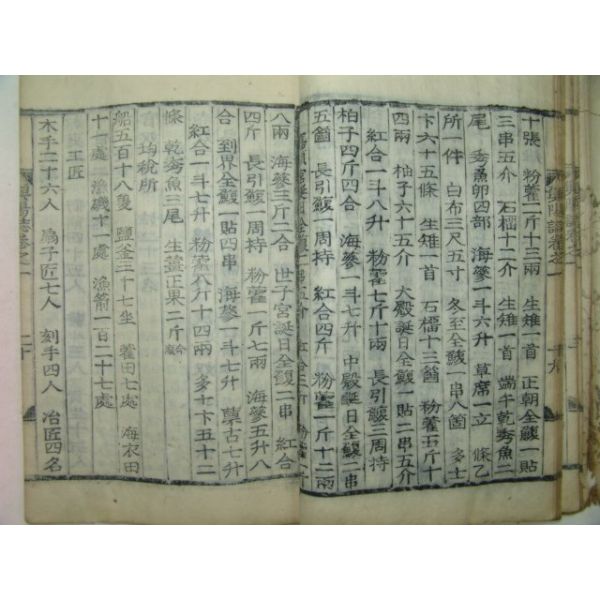 十張 粉藿一斤十三兩 生雉一首 正朝全鰒一貼
三串五介 石榴十二介 生雉一首 端午乾秀魚二
尾 秀魚卵四部 海蔘一斗六升 草席一立 條乙
所一件 白布三尺五寸 冬至全鰒一串八箇 多士
卞六十五條 生雉一首 石榴十三箇 粉藿五斤十
四兩 柚子六十五介 大殿誕日全鰒一貼二串五介
紅合一斗八升 粉藿七斤十兩 長引鰒三周持
柏子四斤四合 海蔘一斗七升 中殿誕日全鰒二串
五箇 長引鰒一周持 紅合四斤 粉藿一斤十二兩
誕日全鰒 一串五介 紅合三斤
八兩 海蔘三斤二合 世子宮誕日全鰒二串 紅合
四斤 長引鰒一周持 粉藿一斤七兩 海蔘五升八
合 到界全鰒一貼四串 海蔘一斗七升 藁古七升
紅合一斗七升 粉藿八斤十四兩 多士卞五十二
條 乾秀魚三尾 生薑正果二斤
均稅所
船五百十八隻 鹽釜三十七坐 藿田七處 海衣田
十一處 漁磯十一處 漁箭一百二十七處
工匠
木手二十六人 扇子匠七人 刻手四人 冶匠四名